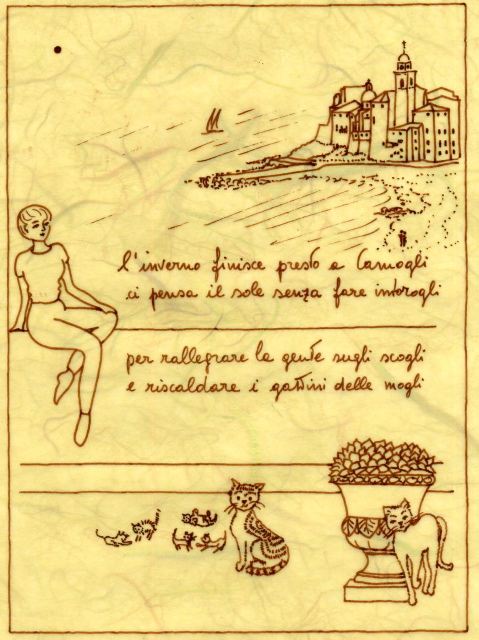 l'inverno finisce presto a Camogli
ci pensa il sole senza fare imbrogli
per rallegrare la gente sugli scogli
e riscaldare i gattini delle mogli